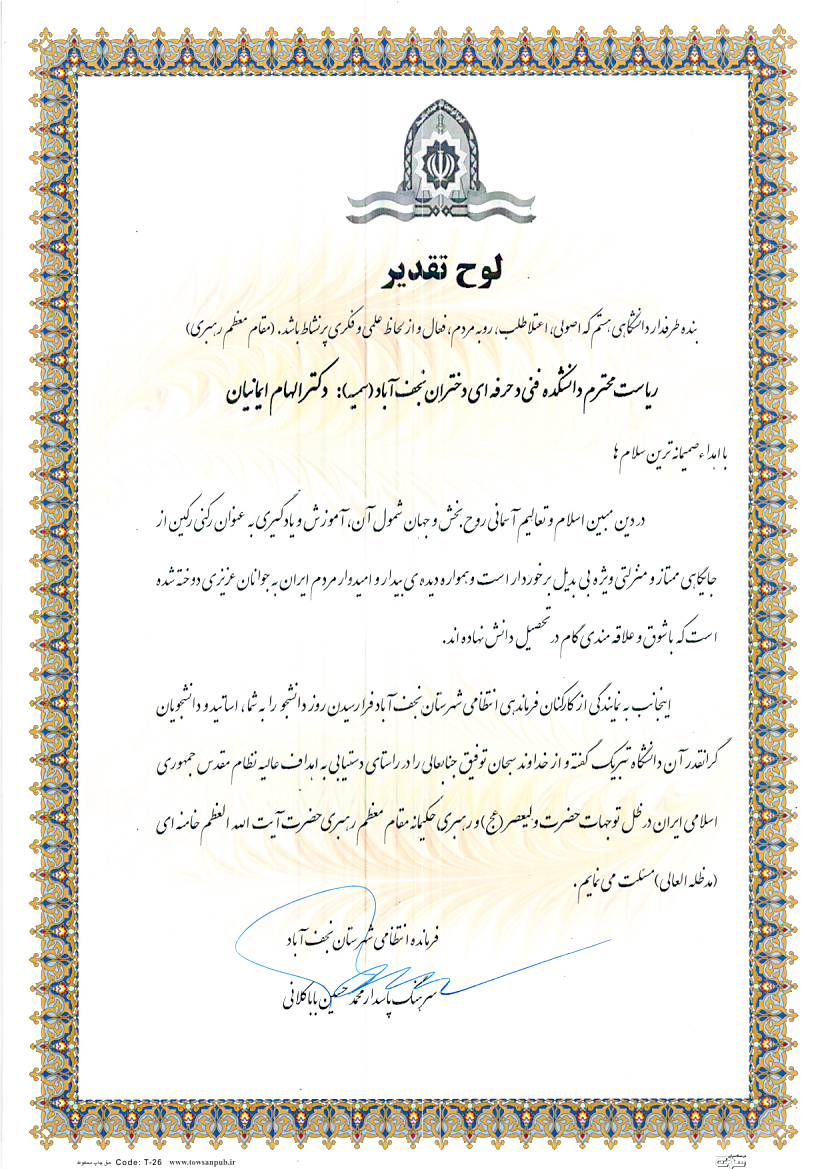 لوح تقدیر
بنده طرفدار دانشگاهی هستم که اصولی، اعتلا طلب، رو به مردم، فعال و از لحاظ علمی و فکری پرنشاط باشد. (مقام معظم رهبری)
ریاست محترم دانشکده فنی و حرفه ای دختران نجف آباد (سمیه): دکتر الهام ایمانیان
با اهداء صمیمانه ترین سلام ها
در دین مبین اسلام و تعالیم آسمانی روح بخش و جهان شمول آن، آموزش و یادگیری به عنوان رکنی رکین از
جایگاهی ممتاز و منزلتی ویژه بی بدیل برخوردار است و همواره دیده ی بیدار و امیدوار مردم ایران به جوانان عزیزی دوخته شده
است که با شوق و علاقه مندی گام در تحصیل دانش نهاده اند.
اینجانب به نمایندگی از کارکنان فرماندهی انتظامی شهرستان نجف آباد فرارسیدن روز دانشجو را به شما، اساتید و دانشجویان
گرانقدر آن دانشگاه تبریک گفته و از خداوند سبحان توفیق جنابعالی را در راستای دستیابی به اهداف عالیه نظام مقدس جمهوری
اسلامی ایران در ظل توجهات حضرت ولیعصر (عج) و رهبری حکیمانه مقام معظم رهبری حضرت آیت الله العظم خامنه ای
(مدظله العالی) مسئلت می نمایم.
فرمانده انتظامی شهرستان نجف آباد
سرهنگ پاسدار محمد حسین باباکلانی
حق چاپ محفوظ Code: T-26 www.towsanpub.ir